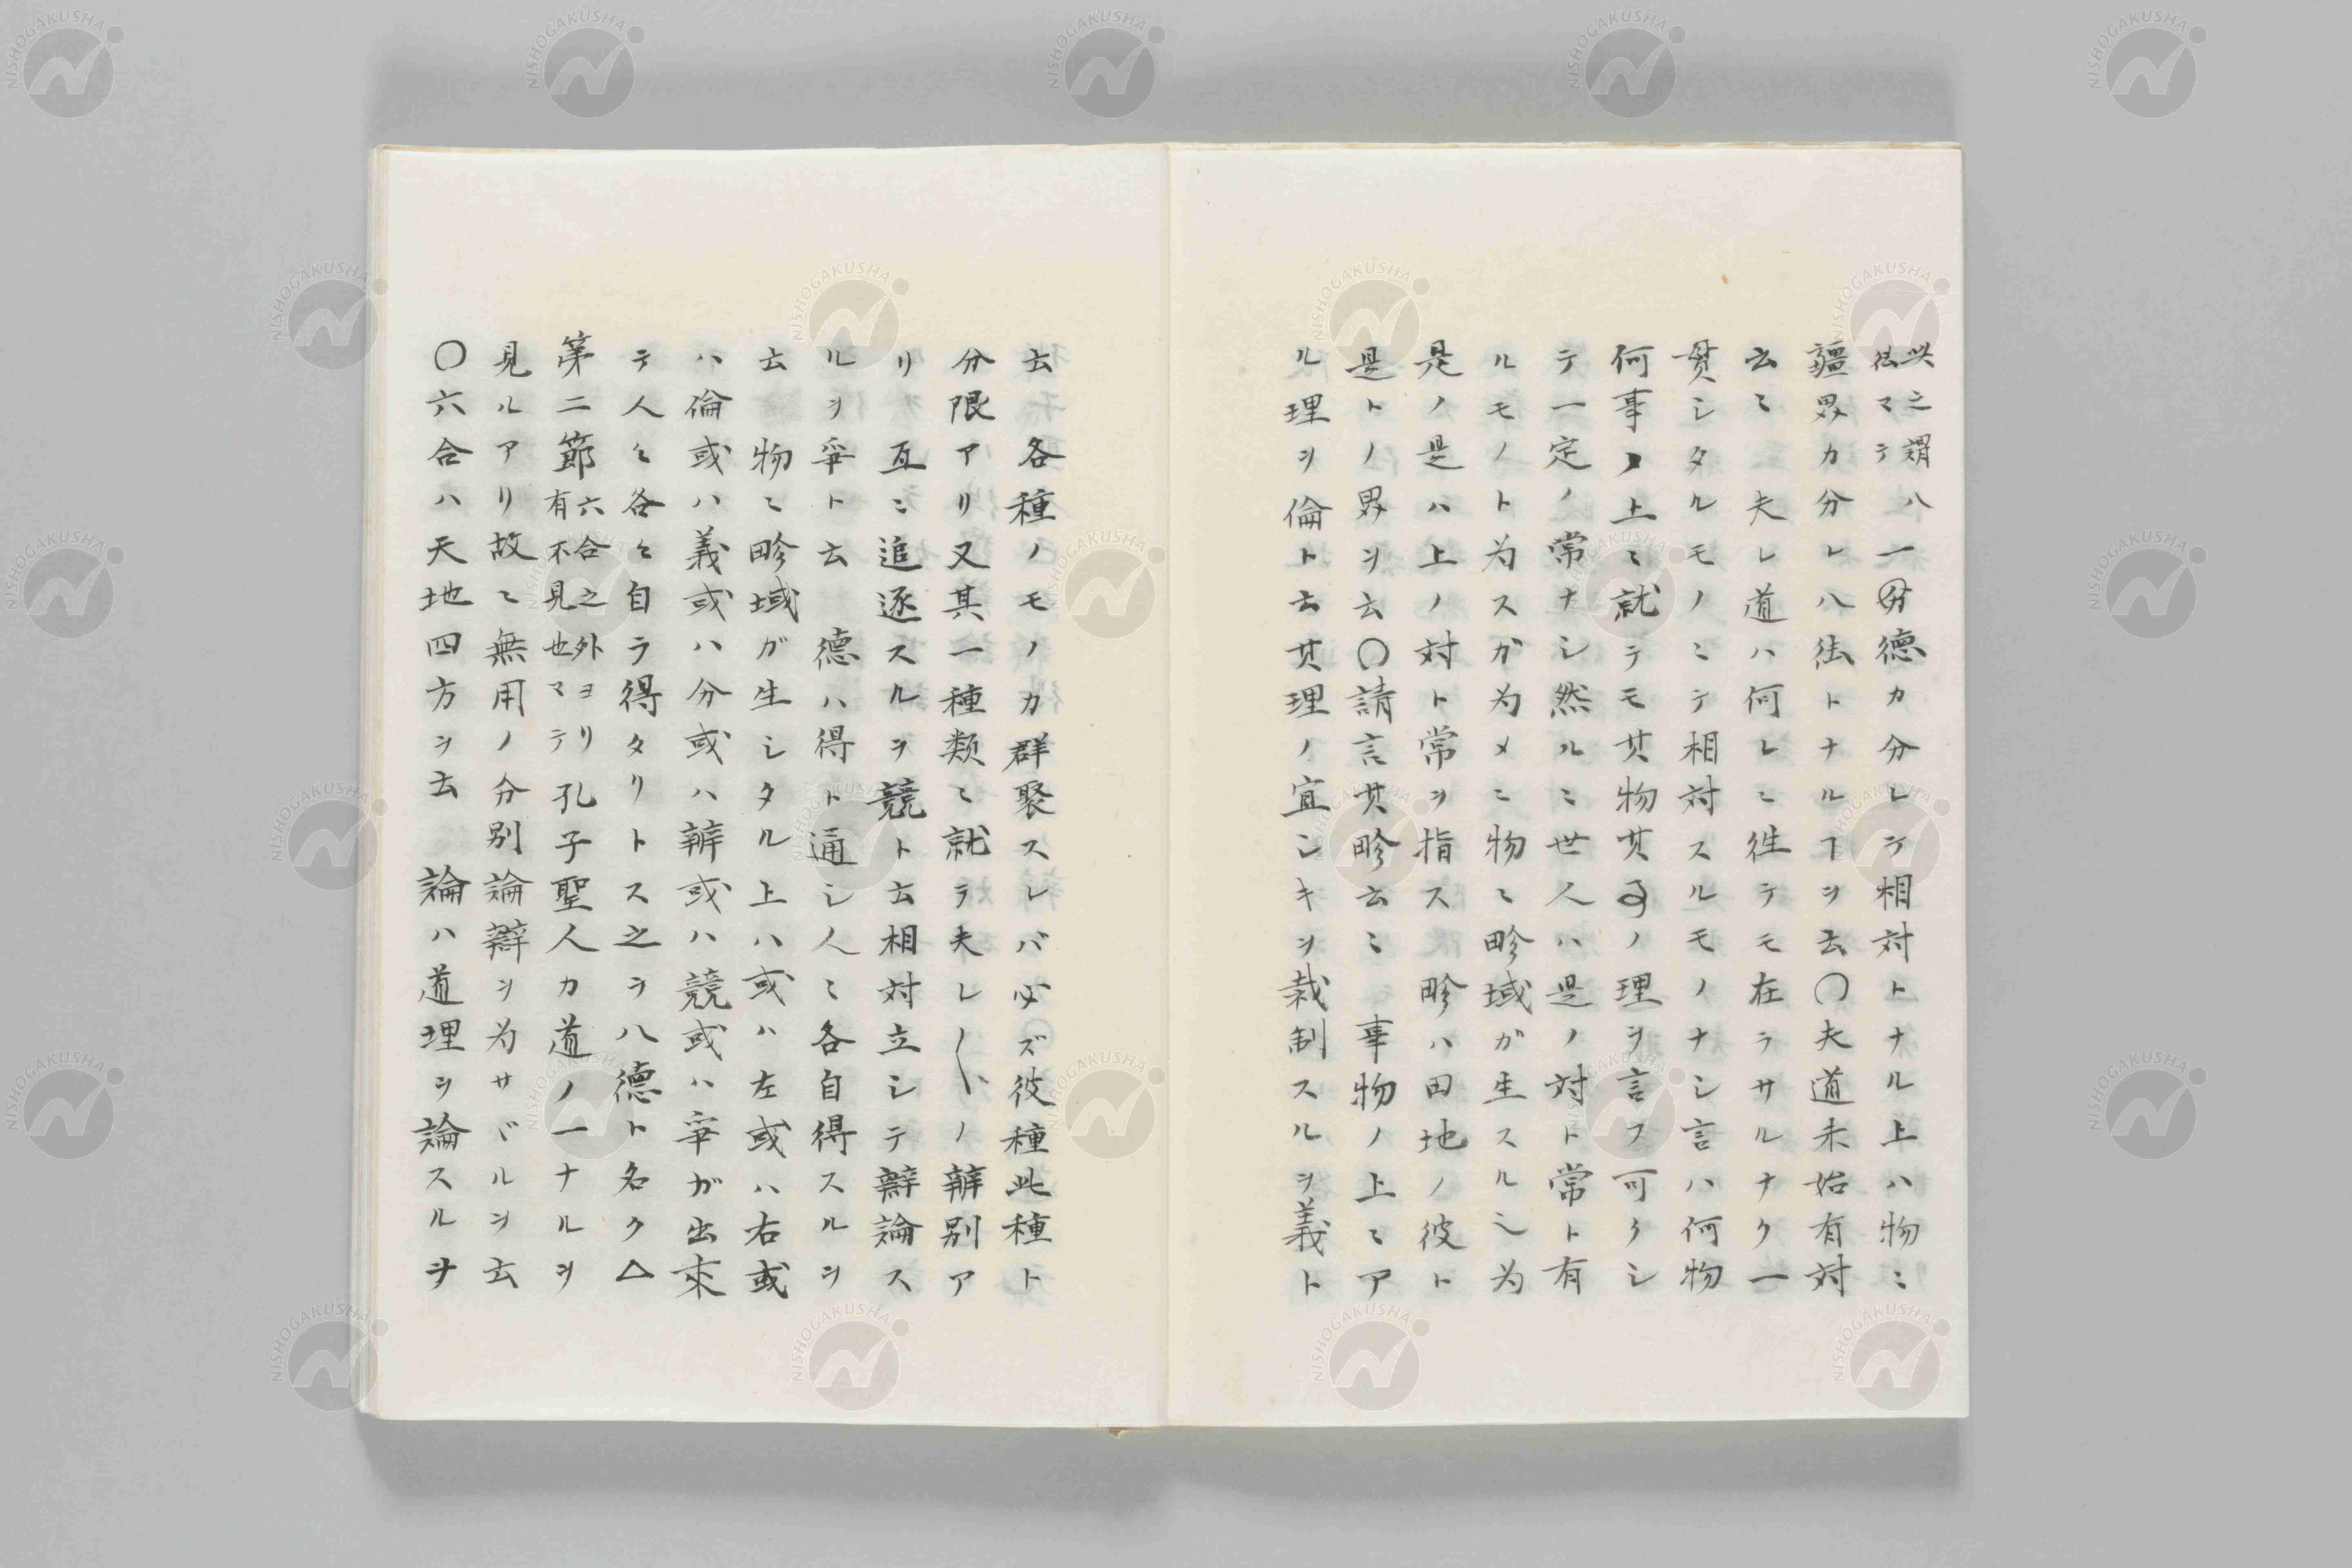 此之謂八
徳マテ
一団徳カ分レテ相対トナル上ハ物ニ
疆界カ分レ八徳トナルヿヲ云〇夫道未始有対
云ニ　夫レ道ハ何レニ徃テモ在ラサルナク一
貫シタルモノニテ相対スルモノナシ言ハ何物
何事ノ上ニ就テモ其物其事ノ理ヲ言フ可クシ
テ一定ノ常ナシ然ルニ世人ハ是ノ対ト常ト有
ルモノト为スガ为メニ物ニ畛域ガ生スル乀为
是ノ是ハ上ノ対ト常ヲ指ス　畛ハ田地ノ彼ト
是トノ界ヲ云〇請言其畛云ミ　事物ノ上ニア
ル理ヲ倫ト云其理ノ宜シキヲ裁制スルヲ義ト
云　各種ノモノカ群聚スレバ必ズ彼種此種ト
分限アリ又其一種類ニ就テ夫レ〳〵ノ辨別ア
リ　互ニ追逐スルヲ競ト云相対立シテ辯論ス
ルヲ爭ト云　徳ハ得ト通シ人ミ各自得スルヲ
云　物ミ畛域ガ生シタル上ハ或ハ左或ハ右或
ハ倫或ハ義或ハ分或ハ辨或ハ競或ハ爭ガ出來
テ人々各々自ラ得タリトス之ヲ八徳ト名ク△
第二節
六合之外ヨリ
有不見也マテ
孔子聖人カ道ノ一ナルヲ
見ルアリ故ニ無用ノ分別論辯ヲ为サヾルヲ云
〇六合ハ天地四方ヲ云　論ハ道理ヲ論スルヲ